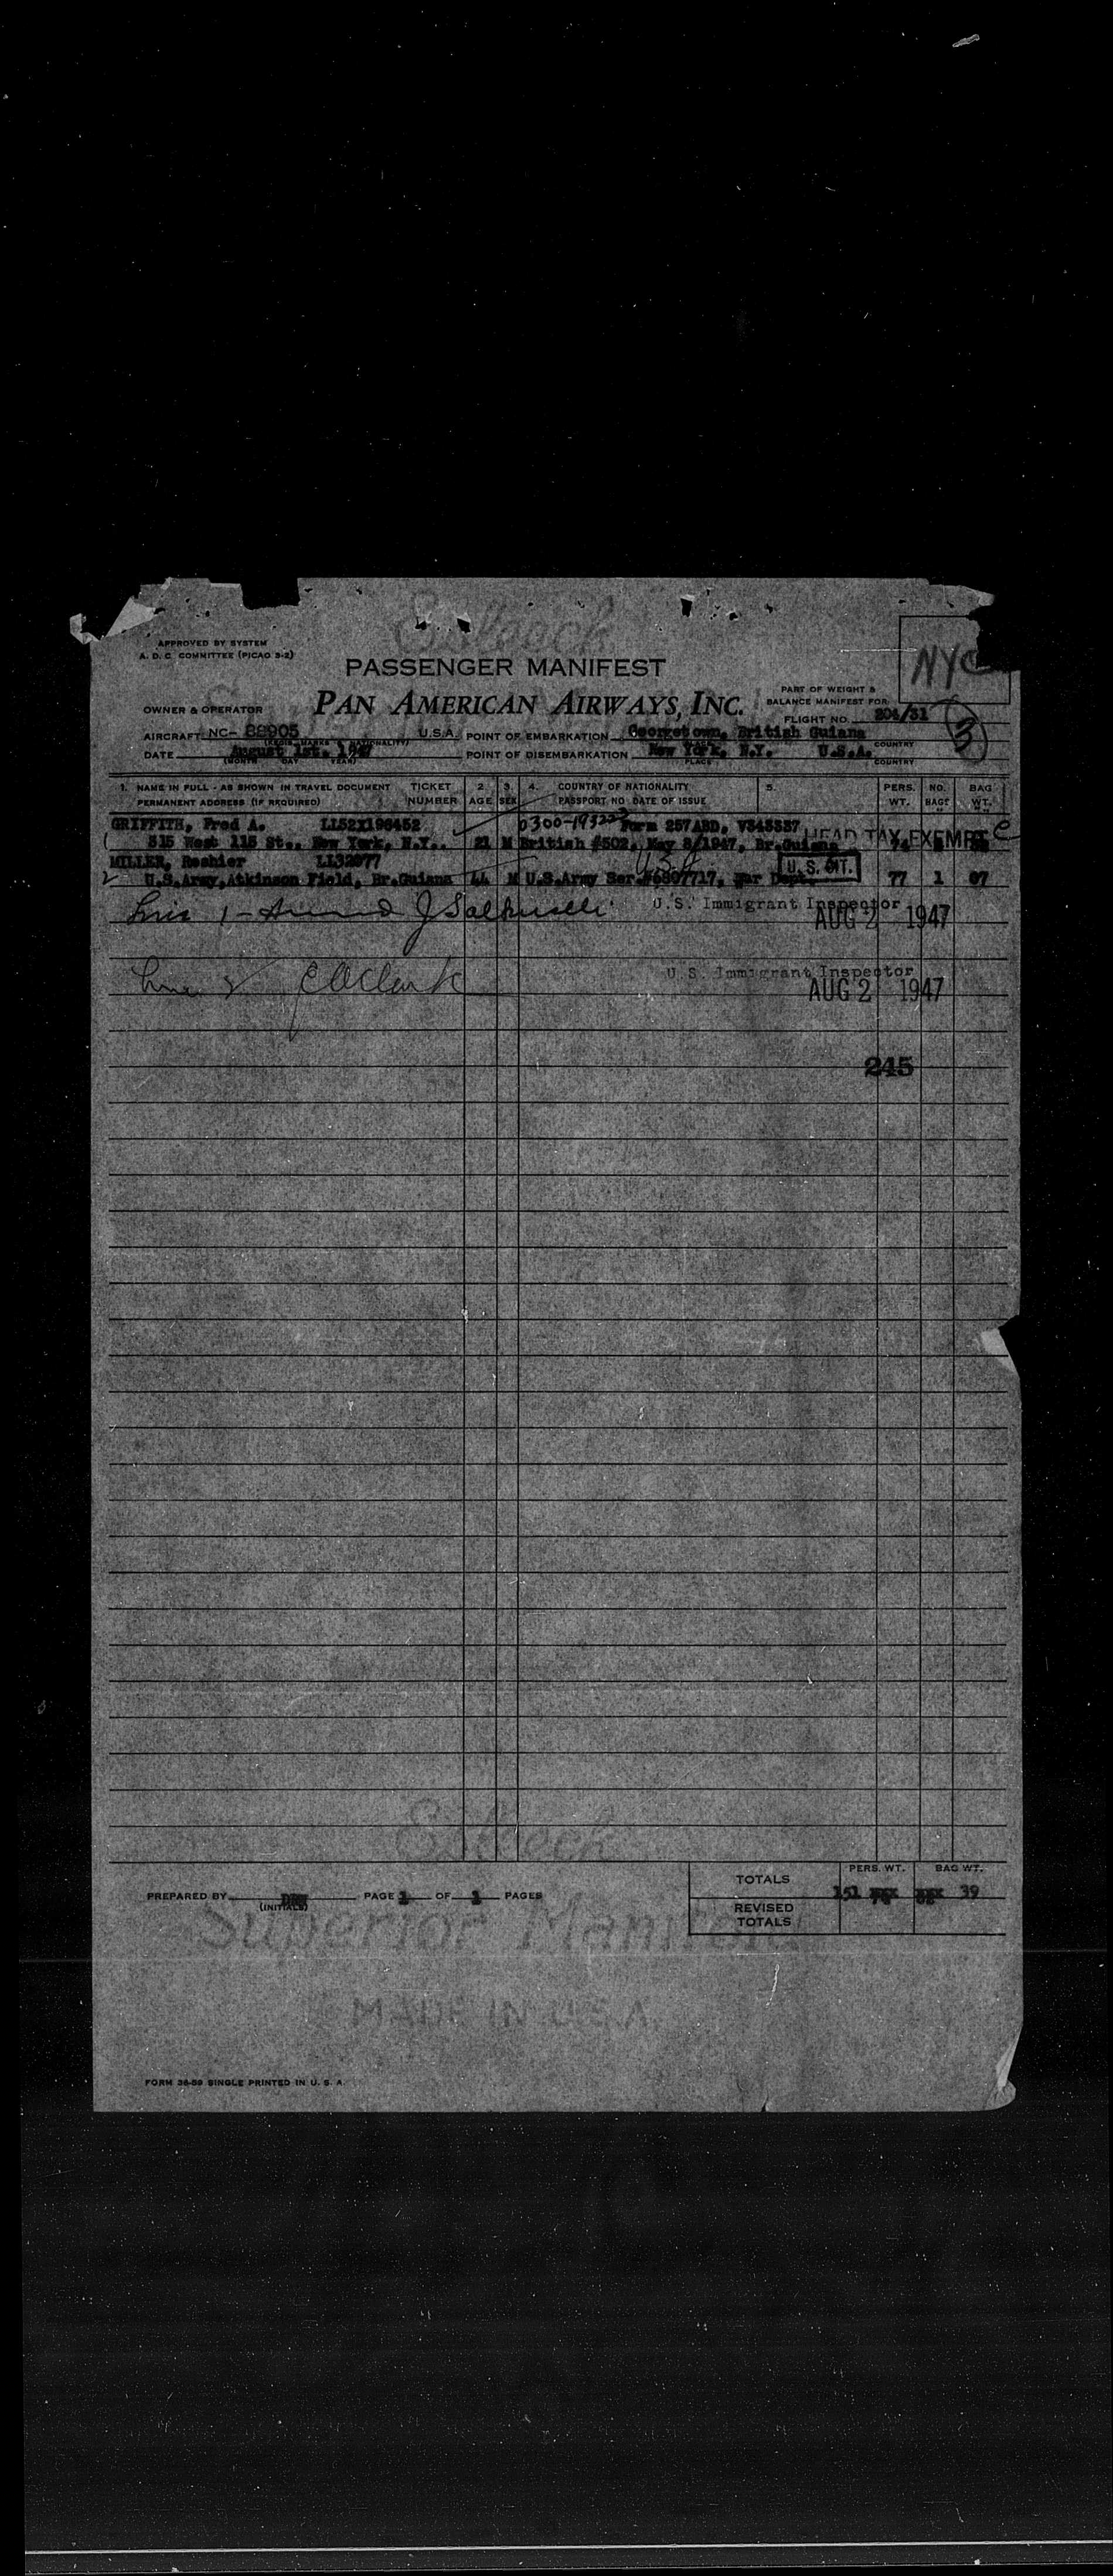 APPROVED BY SYSTEM
A. D. C. COMMITTEE (PICAO 3-2)
NYC
PASSENGER MANIFEST
PAN AMERICAN AIRWAYS, INC.
PART OF WEIGHT &
BALANCE MANIFEST FOR
FLIGHT NO. 204/31
3
OWNER & OPERATOR
AIRCRAFT NC- 88905 U.S.A. POINT OF EMBARKATION Georgetown, British Guiana
(REGIS. MARKS & NATIONALITY) COUNTRY
DATE August 1st, 1947 POINT OF DISEMBARKATION New York, N.Y. U.S.A.
(MONTH DAY YEAR) PLACE COUNTRY
1. NAME IN FULL - AS SHOWN IN TRAVEL DOCUMENT TICKET 2. 3. 4. COUNTRY OF NATIONALITY 5. PERS. NO. BAG
PERMANENT ADDRESS (IF REQUIRED) NUMBER AGE SEX PASSPORT NO. DATE OF ISSUE WT. BAGS WT.
0300-193223
GRIFFITH, Fred A. Form 257ABD, V343537
HEAD TAX EXEMPT C
515 West 115 St., New York, N.Y. 21 M British #502, May 8/1947, Br.Guiana 74
MILLER, Reshier LL32977 USA U.S. CIT.
2 U.S.Army,Atkinson Field, Br.Guiana 44 M U.S.Army Ser.#6807717, War Dept. 77 1 07
U.S. Immigrant Inspector
AUG 2 1947
E Clark U.S. Immigrant Inspector
AUG 2 1947
245
TOTALS PERS. WT. BAG WT.
PREPARED BY PAGE 1 OF 1 PAGES 151 39
(INITIALS)
REVISED
TOTALS
Superior Manifold
MADE IN U.S.A.
FORM 38-59 SINGLE PRINTED IN U. S. A.